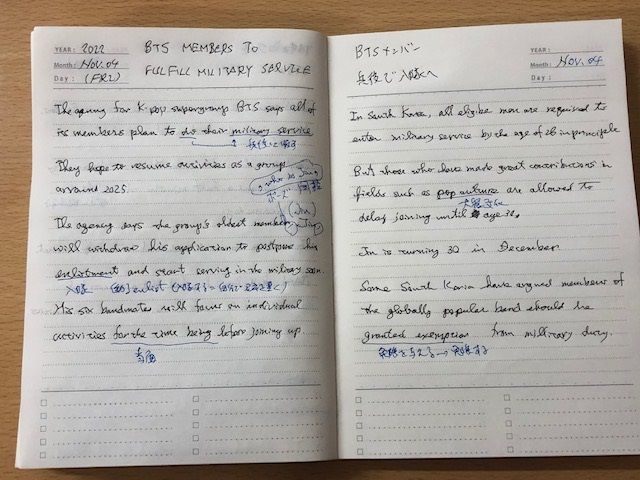 YEAR : 2022
Month : NOV. 04
Day : (FRI)
BTS MEMBERS TO
FULFILL MILITARY SERVICE
The agency for K-pop supergroup BTS says all of
its members plan to do their military service
兵役につく
They hope to resume activities as a group
around 2025.
The agency says the group's oldest member Jing
(Jin)
will withdraw his application to postpone his
enlistment and start serving in the military soon.
入隊
enlist
His six bandmates will focus on individual
activities for the time being before joining up.
当面
BTSメンバー
兵役で入隊へ
YEAR :
Month : NOV. 04
Day :
In South Korea, all eligible men are required to
enter military service by the age of 28 in principle
But those who have made great contributions in
fields such as pop culture are allowed to
大衆文化
delay joining until age 30.
Jin is turning 30 in December
Some South Korea have argued members of
the globally popular band should be
granted exemption from military duty.
免除を与える → 免除する